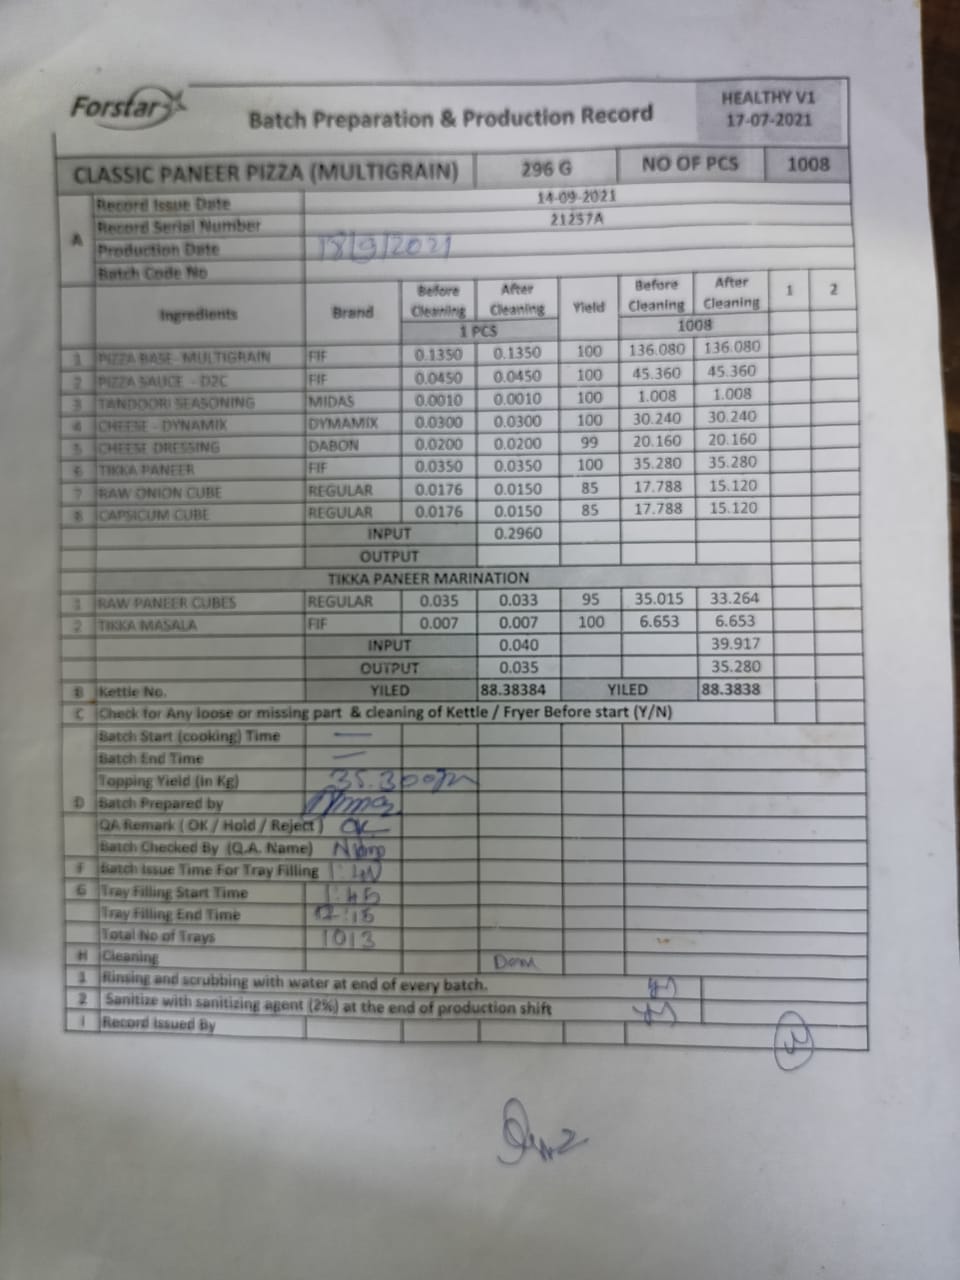 Forstar
Batch Preparation & Production Record
HEALTHY V1
17-07-2021
CLASSIC PANEER PIZZA (MULTIGRAIN) 296 G NO OF PCS 1008
Record Issue Date 14-09-2021
Record Serial Number 21257A
A
Production Date 18/9/2021
Batch Code No
Ingredients Brand Before Cleaning After Cleaning Yield Before Cleaning After Cleaning 1 2
1 PCS 1008
1 PIZZA BASE- MULTIGRAIN FIF 0.1350 0.1350 100 136.080 136.080
2 PIZZA SAUCE - D2C FIF 0.0450 0.0450 100 45.360 45.360
3 TANDOORI SEASONING MIDAS 0.0010 0.0010 100 1.008 1.008
4 CHEESE - DYNAMIX DYMAMIX 0.0300 0.0300 100 30.240 30.240
5 CHEESE DRESSING DABON 0.0200 0.0200 99 20.160 20.160
6 TIKKA PANEER FIF 0.0350 0.0350 100 35.280 35.280
7 RAW ONION CUBE REGULAR 0.0176 0.0150 85 17.788 15.120
8 CAPSICUM CUBE REGULAR 0.0176 0.0150 85 17.788 15.120
INPUT 0.2960
OUTPUT
TIKKA PANEER MARINATION
1 RAW PANEER CUBES REGULAR 0.035 0.033 95 35.015 33.264
2 TIKKA MASALA FIF 0.007 0.007 100 6.653 6.653
INPUT 0.040 39.917
OUTPUT 0.035 35.280
B Kettle No. YILED 88.38384 YILED 88.3838
C Check for Any loose or missing part & cleaning of Kettle / Fryer Before start (Y/N)
Batch Start (cooking) Time —
Batch End Time —
Topping Yield (in Kg) 35.300
D Batch Prepared by
QA Remark ( OK / Hold / Reject ) OK
Batch Checked By (Q.A. Name)
F Batch Issue Time For Tray Filling
G Tray Filling Start Time 1:45
Tray Filling End Time
Total No of Trays 1013
H Cleaning
1 Rinsing and scrubbing with water at end of every batch.
2 Sanitize with sanitizing agent (2%) at the end of production shift
I Record Issued By